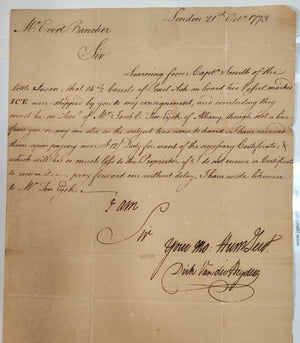 London 21st Octr 1773
Mr Evert Bancker
Sir
Learning from Captn Smith of the
little Susan, that 14½ Barrels of Pearl Ash on board his Vessel marked
ICE were shipped by you to my consignment, and concluding they
must be on Acct of Mr Jacob C. Ten Eyck of Albany, though not a line
from you or any one else on the subject has come to hand, I have entered
them upon paying Duty for want of the necessary Certificate, &
which will be so much loss to the Proprietor if I do not receive a Certificate
to recover it - pray forward one without delay, I have wrote likewise
to Mr Ten Eyck.
I am
Sir
Your mo. Hum Servt.
Dirk Van der Heyden